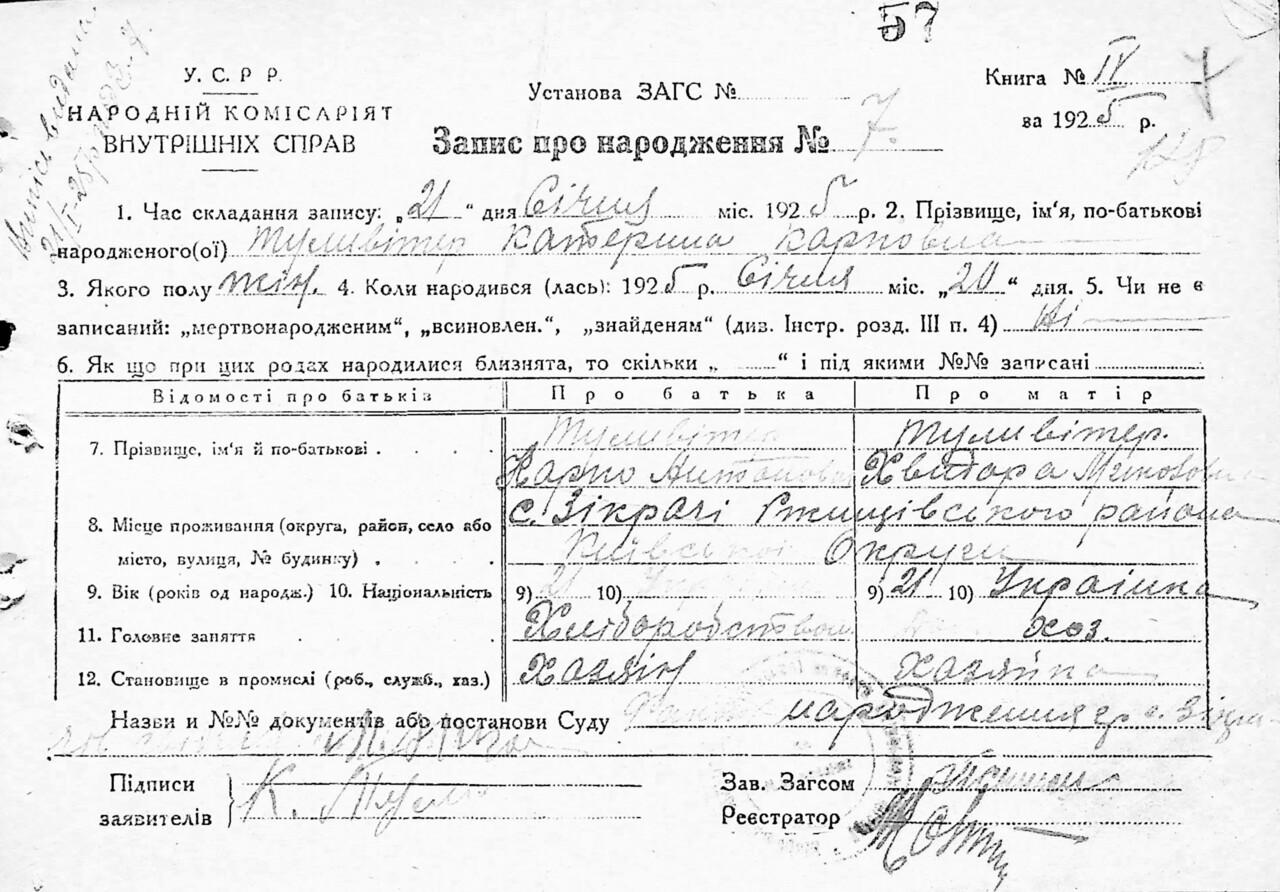 57
Випись видана
21/I-25р.
У. С. Р. Р.
НАРОДНІЙ КОМІСАРІЯТ
ВНУТРІШНІХ СПРАВ
Установа ЗАГС №
Запис про народження № 7.
Книга № IV
за 1925 р.
1. Час складання запису: „21“ дня Січня міс. 1925 р. 2. Прізвище, ім'я, по-батькові
народженого(ої) Туливітер Катерина Карповна
3. Якого полу жін. 4. Коли народився (лась): 1925 р. Січня міс. „20“ дня. 5. Чи не є
записаний: „мертвонародженим“, „всиновлен.“, „знайденям“ (див. Інстр. розд. III п. 4) Ні
6. Як що при цих родах народилися близнята, то скільки „ “ і під якими №№ записані
Відомості про батьків Про батька Про матір
7. Прізвище, ім'я й по-батькові Туливітер Туливітер.
Карпо Хвидора
8. Місце проживання (округа, район, село або с. Зікрачі Ржищівського района
місто, вулиця, № будинку) Київської Округи
9. Вік (років од народж.) 10. Національність 9) 21 10) 9) 21 10) Українка
11. Головне заняття Хліборобством хоз.
12. Становище в промислі (роб., служб., хаз.) Хазяїн Хазяйка
Назви и №№ документів або постанови Суду народження гр. с.
Підписи
заявителів К.
Зав. Загсом
Реєстратор